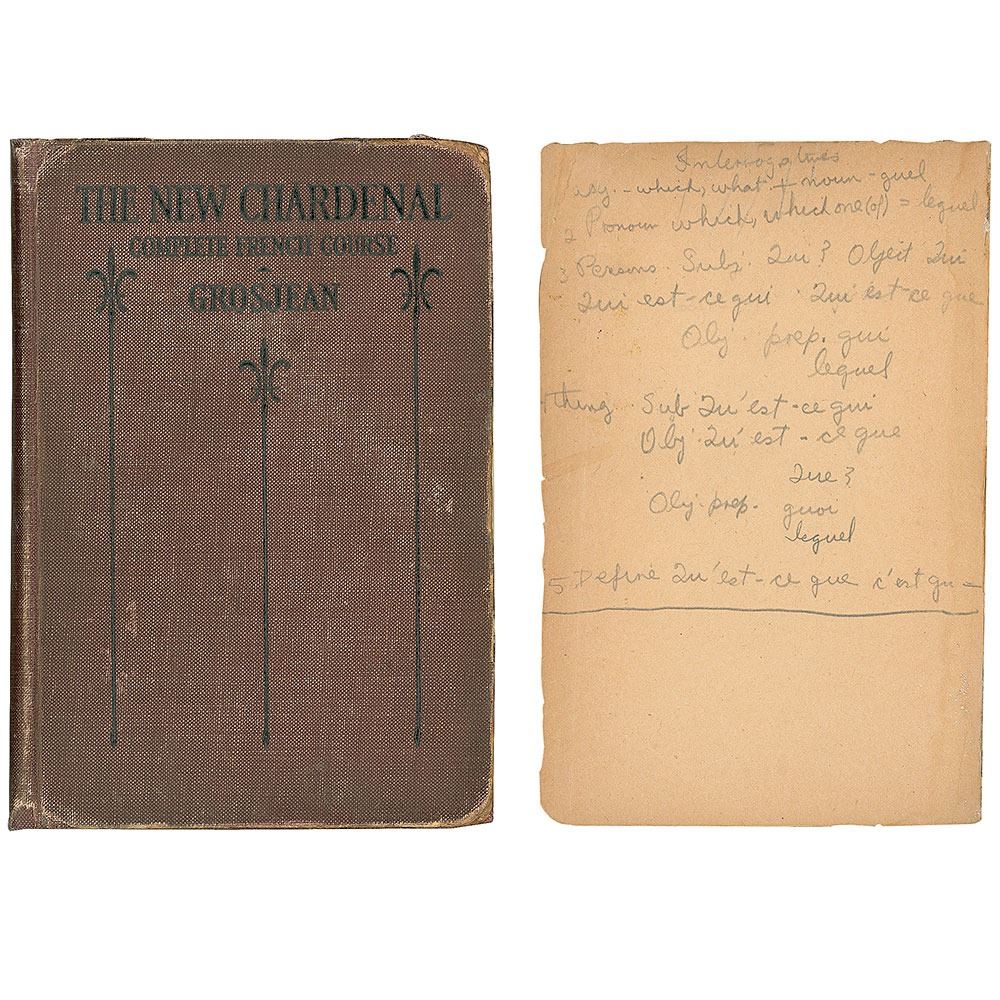 THE NEW CHARDENAL
COMPLETE FRENCH COURSE
GROSJEAN
Interrogatives
adj. - which, what + noun - quel
2 Pronoun which, which one (of) = lequel
3 Persons. Subj. Qui? Object Qui
Qui est-ce qui Qui est-ce que
Obj. prep. qui
lequel
thing. Sub Qu'est-ce qui
Obj. Qu'est-ce que
Que?
Obj. prep. quoi
lequel
5. Define Qu'est-ce que c'est qu-